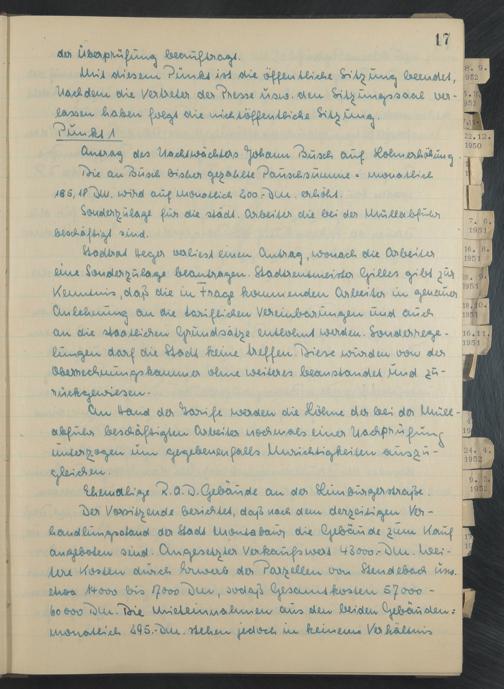 17
der Überprüfung beauftragt.
Mit diesem Punkt ist die öffentliche Sitzung beendet,
Nachdem die Vertreter der Presse usw. den Sitzungssaal ver-
lassen haben folgt die nichtöffentliche Sitzung.
Punkt 1
Antrag des Nachtwächters Johann Busch auf Lohnerhöhung.
Die an Busch bisher gezahlte Pauschsumme = monatlich
186,18 DM. wird auf monatlich 200.-DM. erhöht.
Sonderzulage für die städt. Arbeiter die bei der Müllabfuhr
beschäftigt sind.
Stadtrat Heger verliest einen Antrag, wonach die Arbeiter
eine Sonderzulage beantragen. Stadtrentmeister Gilles gibt zur
Kenntnis, daß die in Frage kommenden Arbeiter in genauer
Anlehnung an die tariflichen Vereinbarungen und auch
an die staatlichen Grundsätze entlohnt werden. Sonderrege-
lungen darf die Stadt keine treffen. Diese würden von der
Oberrechnungskammer ohne weiteres beanstandet und zu-
rückgewiesen.
An Hand der Tarife werden die Löhne der bei der Müll-
abfuhr beschäftigten Arbeiter nochmals einer Nachprüfung
unterzogen um gegebenenfalls Unrichtigkeiten auszu-
gleichen.
Ehemalige R.A.D. Gebäude an der Limburgerstraße.
Der Vorsitzende berichtet, daß nach dem derzeitigen Ver-
handlungsstand der Stadt Montabaur die Gebäude zum Kauf
angeboten sind. Angesetzter Verkaufswert 43000.-DM. Wei-
tere Kosten durch Erwerb der Parzellen von Stendebach usw.
etwa 14000 bis 17000 DM, sodaß Gesamtkosten 57000 -
60000 DM. Die Mieteinnahmen aus den beiden Gebäuden =
monatlich 295.-DM. stehen jedoch in keinem Verhältnis
8. 9.
1952
22.12.
1950
7. 6.
1951
1951
1951
18.10.
1951
16.11.
1951
24. 4.
1952
1952